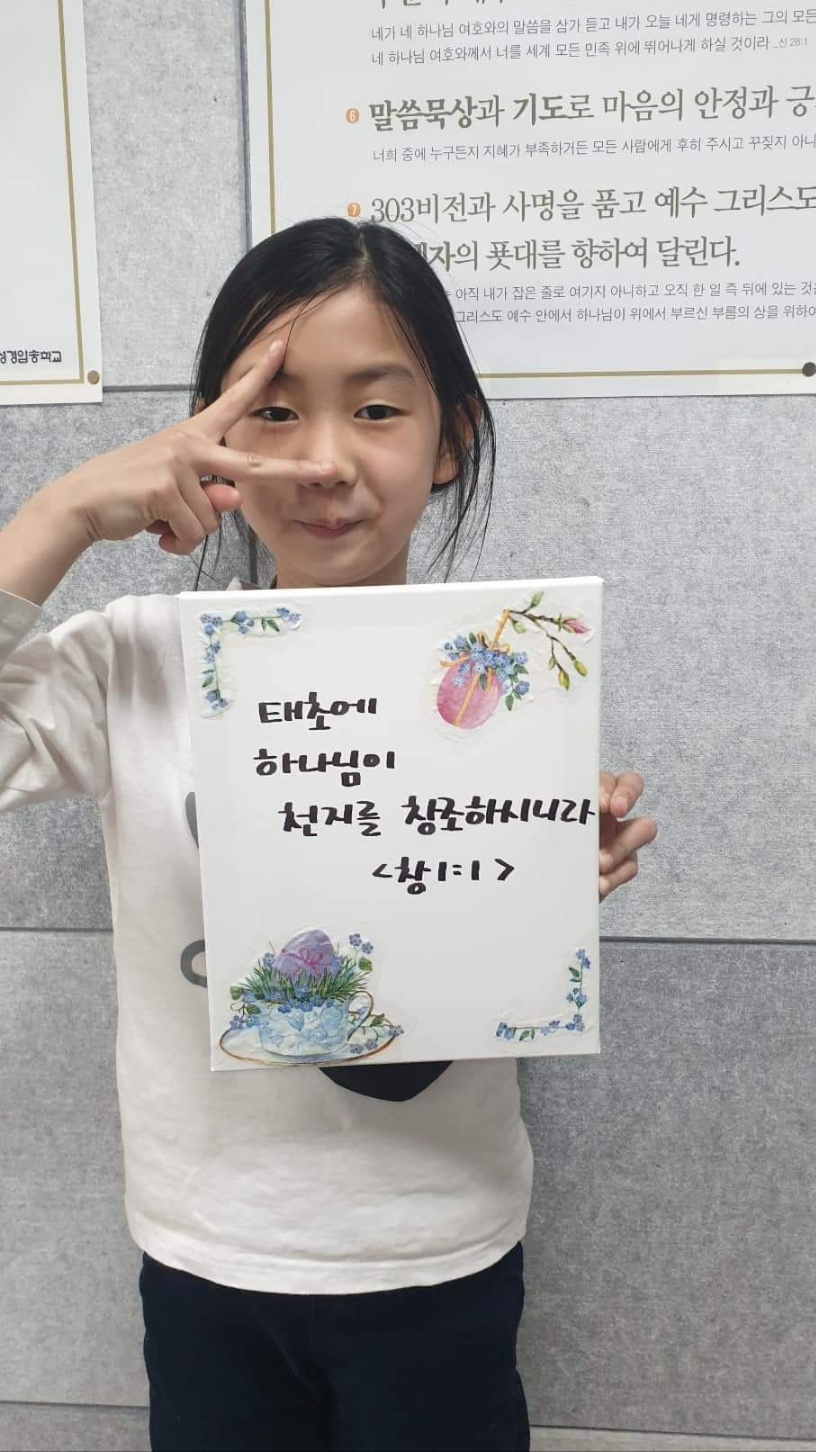 네가 네 하나님 여호와의 말씀을 삼가 듣고 내가 오늘 네게 명령하는 그의 모든
네 하나님 여호와께서 너를 세계 모든 민족 위에 뛰어나게 하실 것이라 _신 28:1
6 말씀묵상과 기도로 마음의 안정과 긍
너희 중에 누구든지 지혜가 부족하거든 모든 사람에게 후히 주시고 꾸짖지 아니
7 303비전과 사명을 품고 예수 그리스도
자의 푯대를 향하여 달린다.
아직 내가 잡은 줄로 여기지 아니하고 오직 한 일 즉 뒤에 있는 것은
그리스도 예수 안에서 하나님이 위에서 부르신 부름의 상을 위하여
성경암송학교
태초에
하나님이
천지를 창조하시니라
<창 1:1>